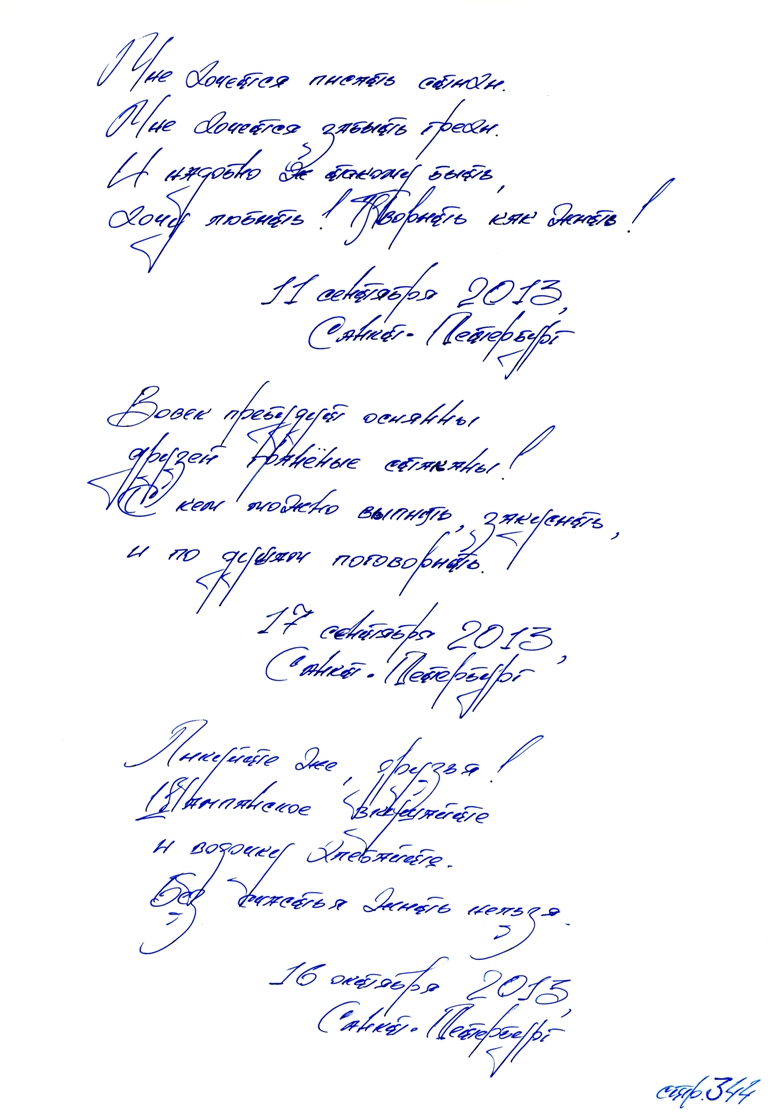 Мне хочется писать стихи.
Мне хочется забыть грехи.
И надобно ж такому быть,
Хочу любить! Творить как жить!
11 сентября 2013,
Санкт-Петербург
Вовек пребудут осиянны
друзей гранёные стаканы!
С кем можно выпить, закусить,
и по душам поговорить.
17 сентября 2013,
Санкт-Петербург
Ликуйте же, друзья!
Шампанское вкушайте
и водочку хлебайте.
Без счастья жить нельзя.
16 октября 2013,
Санкт-Петербург
стр. 344